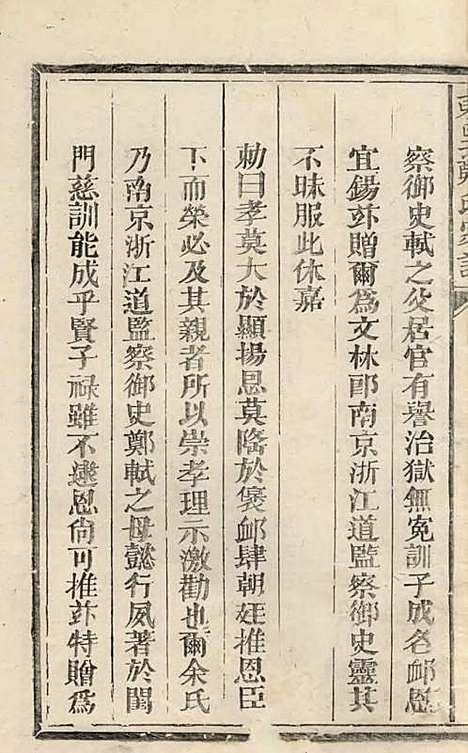 察御史軾之父居官有譽治獄無冤訓子成名䘏恩
宜錫玆贈爾為文林郎南京浙江道監察御史靈其
不昧服此休嘉
勅曰孝莫大於顯揚恩莫隆於褒䘏肆朝廷推恩臣
下而榮必及其親者所以崇孝理示激勸也爾余氏
乃南京浙江道監察御史鄭軾之母懿行夙著於閨
門慈訓能成乎賢子祿雖不逮恩尚可推玆特贈為